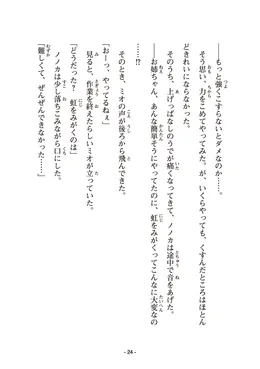 ――もっと強くこすらないとダメなのか……。
そう思い、力をこめてやってみた。が、いくらやっても、くすんだところはほとん
どきれいにならなかった。
そのうち、上げっぱなしのうでが痛くなってきて、ノノカは途中で音をあげた。
――お姉ちゃん、あんな簡単そうにやってたのに、虹をみがくってこんなに大変なの
か……っ。
そのとき、ミオの声が後ろから飛んできた。
「おーっ、やってるねぇ」
見ると、作業を終えたらしいミオが立っていた。
「どうだった？ 虹をみがくのは」
ノノカは少し落ちこみながら口にした。
「難しくて、ぜんぜんできなかった……」
- 24 -